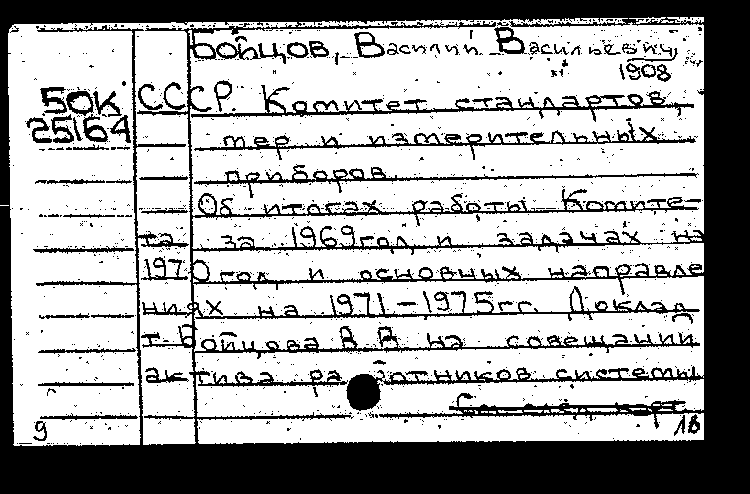 Бойцов, Василий Васильевич,
1908
50К СССР. Комитет стандартов,
25164 мер и измерительных
приборов.
Об итогах работы Комите-
та за 1969 год и задачах на
1970 год и основных направле
ниях на 1971-1975 гг. Доклад
т. Бойцова В В на совещании
актива работников системы
См след карт
9 1В